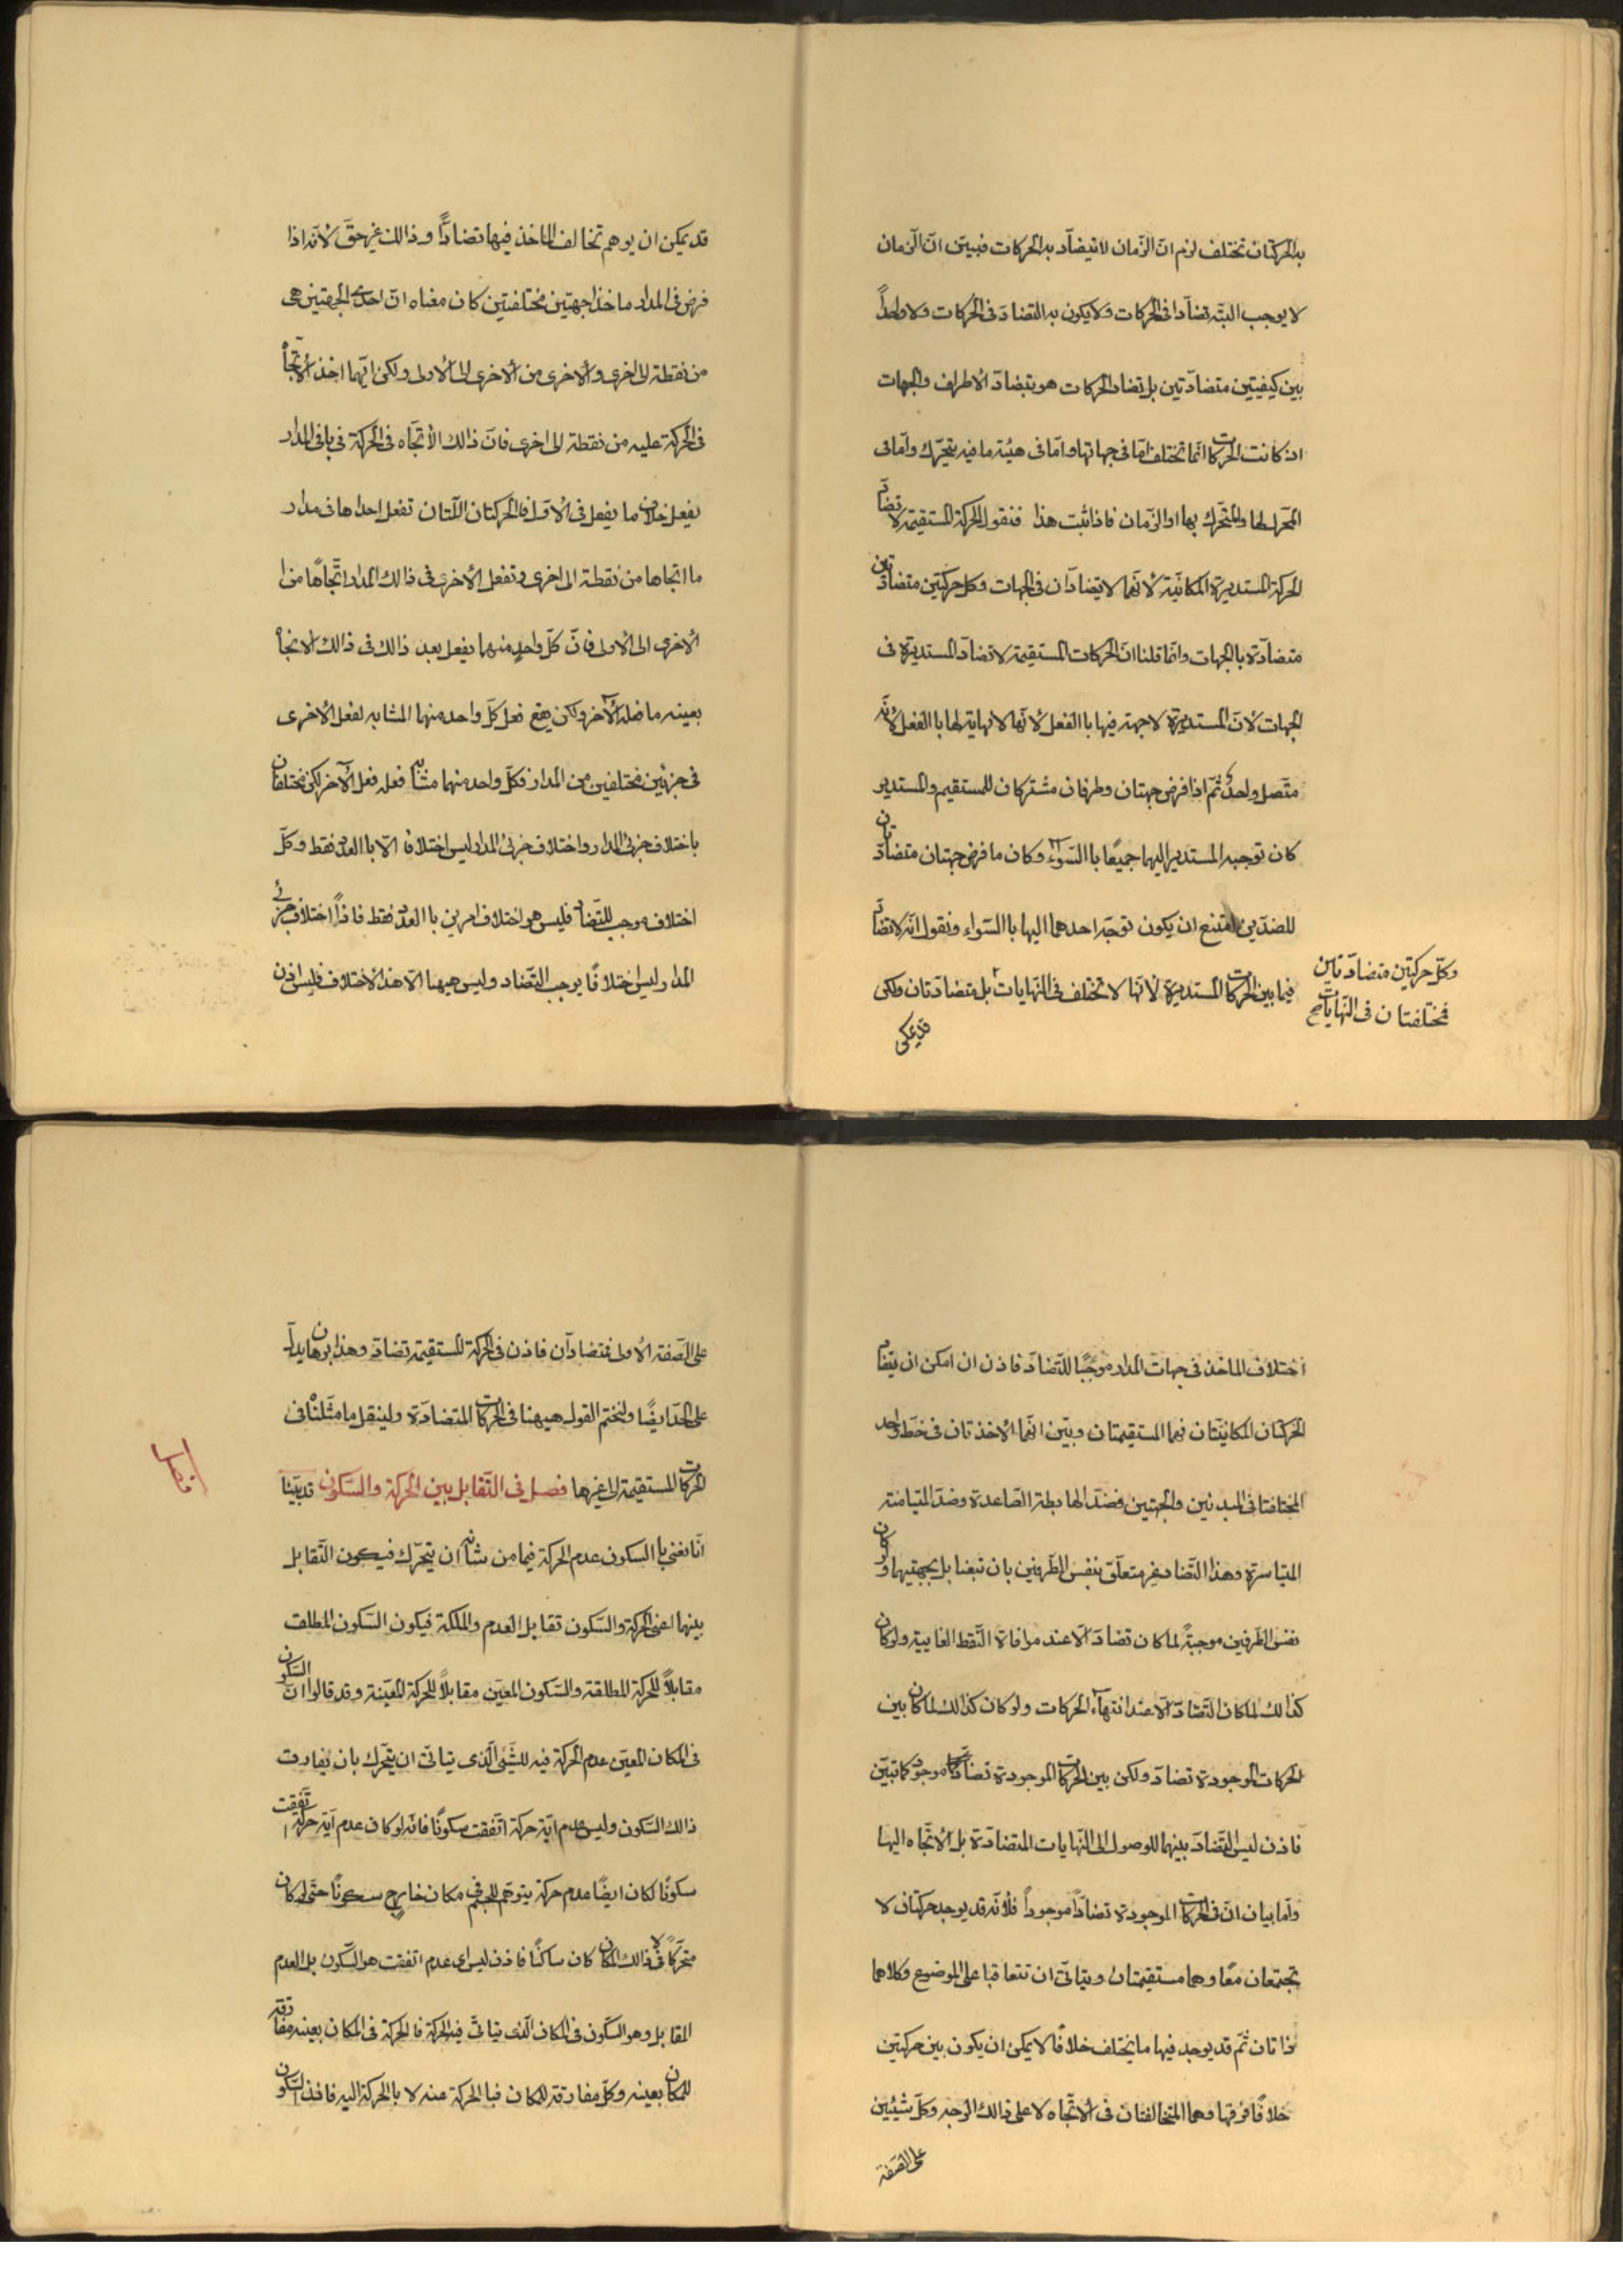 به الحركتان تختلف لزم ان الزّمان لا تيضادّ به الحركات فبيّن انّ الزمان
لا يوجب البتّه تضادا فى الحركات ولا يكون به التضادّ فى الحركات ولا واحداً
بين كيفيتين متضادّتين بل تضاد الحركات هو بتضادّ الاطراف والجهات
اذ كانت الحركات انّما تختلف امّا فى جهاتها وامّا فى هيئة ما فيه يتحرّك وامّا فى
المحرك لها والمتحرّك بهما او الزّمان فاذا ثبت هذا فنقول الحركة المستقيمة لا تضادّ
الحركة المستديرة المكانيّة لانّهما لا يتضادّان فى الجهات وكل حركتين متضادّتين
متضادّة بالجهات وانّما قلنا انّ الحركات المستقيمة لا تضادّ المستديرة فى
الجهات لانّ المستديرة لا جهة فيها باالفعل لانّها لا نهاية لها باالفعل لانّه
متّصل واحد ثمّ اذا فرض جهتان وطرفان مشتركان للمستقيم والمستدير
كان توجيه المستدير اليهما جميعًا باالسّواء وكان ما فرض جهتان متضادّتان
للضدّين امتنع ان يكون توجّه احدهما اليها باالسّواء ونقول انّه لا تضادّ
فيما بين الحركات المستديرة لانّها لا تختلف فى النّهايات بل متضادّتان ولكن
وكلّ حركتين متضادّتين
فمختلفتان فى النّهايات صح
قد يمكن
قد يمكن ان يوهم تخالف الماخذ فيها تضادًّا وذالك غير حقّ لانّه اذا
فرض فى المدار ماخذا جهتين مختلفتين كان معناه انّ احدى الجهتين هى
من نقطة الى اخرى والاخرى من الاخرى الى الاولى ولكن ايّهما اخذ الاتّجاه
فى الحركة عليه من نقطة الى اخرى فانّ ذالك الاتّجاه فى الحركة فى باقى المدار
يفعل خلاف ما يفعل فى الاوّل فالحركتان اللّتان تفعل احداها فى مدار
ما اتجاها من نقطة الى اخرى وتفعل الاخرى فى ذالك المدار اتّجاهًا من ا
لاخرى الى الاولى فانّ كلّ واحدٍ منهما يفعل بعد ذالك فى ذالك الاتجاه
بعينه ما فعله الآخر ولكن يقع فعل كلّ واحد منهما المشابه لفعل الاخرى
فى جزئين مختلفين من المدار فكلّ واحد منهما مشابه فعله فعل الآخر لكن مختلفان
باختلاف جزئى المدار واختلاف جزئى المدار ليس اختلافا الّا باالعدد فقط وكلّ
اختلاف موجب للتّضادّ فليس هو اختلاف امرين باالعدد فقط فاذاً اختلاف جزئى
المدار ليس اختلافًا يوجب التّضاد وليس هيهنا الّا هذ الاختلاف فليس اذن
اختلاف الماخذ فى جهات المدار موجبًا للتّضادّ فاذن ان امكن ان يتضادّ
الحركتان المكانيّتان فهما المستقيمتان وبيّن انّهما الاخذتان فى خطّ واحد
المختلفتا فى المبدئين والجهتين فضدّ الهابطة الصّاعدة وضدّ المتيامنة
المتياسرة وهذا التّضاد غير متعلّق بنفس الطّرفين بان تبعنا بل بجهتيهما ولو كان
نفس الطّرفين موجبةً لما كان تضادّ الّا عند موافاة النّقط الغاييّة ولو كان
كذالك لما كان التّضادّ الّا عند انتهاء الحركات ولو كان كذالك لما كان بين
الحركات الموجودة تضادّ ولكن بين الحركات الموجودة تضادّ موجود كما تبيّن
فاذن ليس التّضادّ بينهما للوصول الى النّهايات المتضادّة بل الاتّجاه اليها
وامّا بيان انّ فى الحركات الموجودة تضادّاً موجوداً فلانّه قد يوجد حركتان لا
تجتمعان معًا وهما مستقيمتان ويتاتّى ان تتعاقبا على الموضوع وكلاهما
ذاتان ثمّ قد يوجد فيها ما يختلف خلافًا لا يمكن ان يكون بين حركتين
خلافًا فوقها وهما المتخالفتان فى الاتّجاه لا على ذالك الوجه وكلّ شيئين
على الصّفة
على الصّفة الاولى فمتضادّان فاذن فى الحركة المستقيمة تضادّ وهذا برهان يدلّ
على الحدّ ايضًا ولنختم القول هيهنا فى الحركات المتضادّة ولينقل ما مثّلناه فى
الحركات المستقيمة الى غيرها فصل فى التّقابل بين الحركة والسّكون قد بيّنا
فصل
انّا نعنى باالسكون عدم الحركة فيما من شانه ان يتحرّك فيكون التّقابل
بينهما اعنى الحركة والسّكون تقابل العدم والملكة فيكون السّكون المطلق
مقابلًا للحركة المطلقة والسّكون المعيّن مقابلًا للحركة المعيّنة وقد قالوا انّ السّكون
فى المكان المعيّن عدم الحركة فيه للشّيئ الّذى يتاتّى ان يتحرّك بان يفارق
ذالك السّكون وليس عدم ايّة حركة اتّفقت سكونًا فانّه لو كان عدم ايّة حركة اتّفقت
سكونًا لكان ايضًا عدم حركة يتوهّم للجسم فى مكان خارج سكونًا حتّى لو كان
متحرّكًا لا فى ذالك المكان كان ساكنًا فاذن ليس اى عدم اتفقت هو السّكون بل العدم
المقابل وهو السّكون فى المكان الّذى يتاتّى فيه الحركة فالحركة فى المكان بعينه مفارقة
للمكان بعينه وكلّ مفارقة للمكان فباالحركة عنه لا باالحركة اليه فاذن السّكون